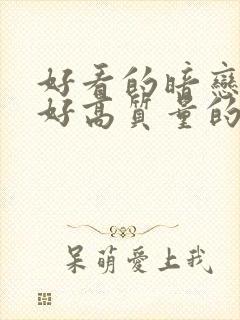 好看的暗戀
好高质量的
呆萌愛上我